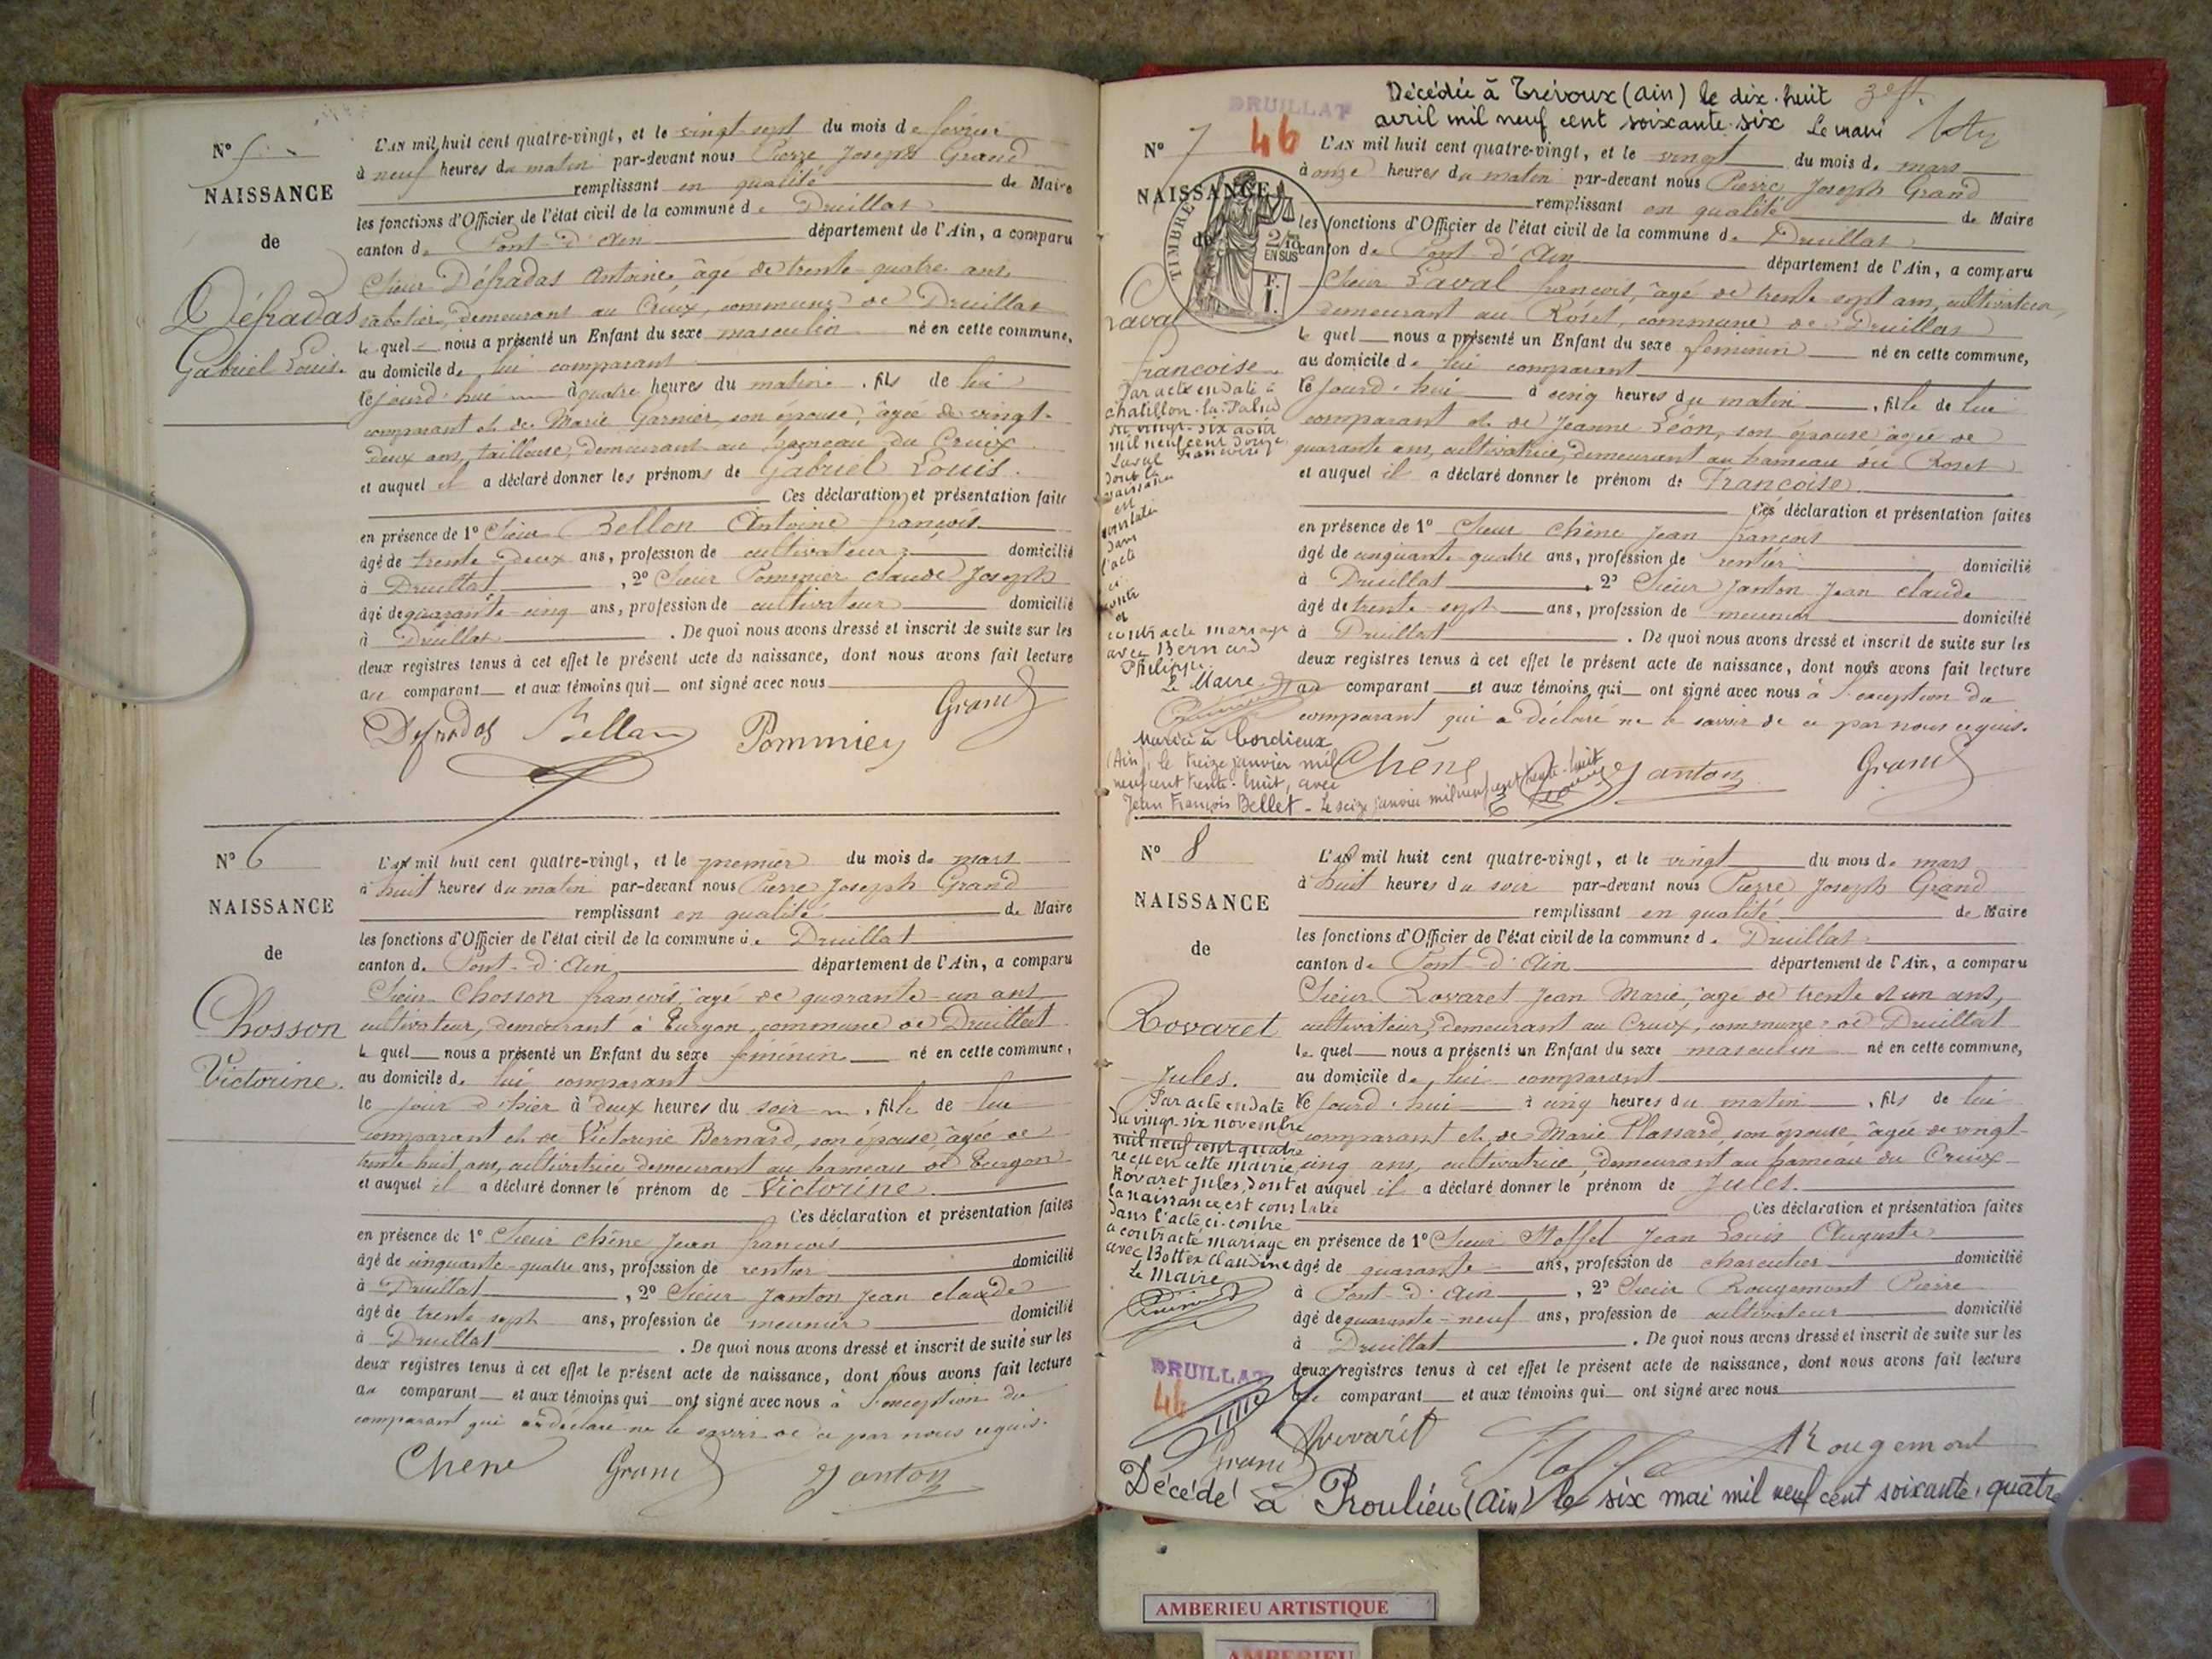 N° 5
NAISSANCE
de
Défradas
Gabriel Louis.
L'AN mil huit cent quatre-vingt, et le vingt sept du mois de février
à neuf heures du matin par-devant nous Pierre Joseph Grand
remplissant en qualité de Maire
les fonctions d'Officier de l'état civil de la commune de Druillat
canton de Pont-d'Ain département de l'Ain, a comparu
Sieur Défradas Antoine, âgé de trente-quatre ans,
sabotier, demeurant au Creux, commune de Druillat
lequel nous a présenté un Enfant du sexe masculin né en cette commune,
au domicile de lui comparant
le jourd'hui à quatre heures du matin, fils de lui
comparant et de Marie Garnier, son épouse, âgée de vingt-
deux ans, tailleuse, demeurant au hameau du Creux
et auquel il a déclaré donner les prénoms de Gabriel Louis.
Ces déclaration et présentation faites
en présence de 1° Sieur Bellon Antoine françois
âgé de trente deux ans, profession de cultivateur domicilié
à Druillat, 2° Sieur Pommier claude Joseph
âgé de quarante-cinq ans, profession de cultivateur domicilié
à Druillat. De quoi nous avons dressé et inscrit de suite sur les
deux registres tenus à cet effet le présent acte de naissance, dont nous avons fait lecture
au comparant et aux témoins qui ont signé avec nous
Defradas Bellon Pommier Grand
N° 6
NAISSANCE
de
Chosson
Victorine.
L'AN mil huit cent quatre-vingt, et le premier du mois de mars
à huit heures du matin par-devant nous Pierre Joseph Grand
remplissant en qualité de Maire
les fonctions d'Officier de l'état civil de la commune de Druillat
canton de Pont-d'Ain département de l'Ain, a comparu
Sieur Chosson françois, âgé de quarante-un ans
cultivateur, demeurant à Turgon, commune de Druillat
lequel nous a présenté un Enfant du sexe féminin né en cette commune,
au domicile de lui comparant
le jour d'hier à deux heures du soir, fille de lui
comparant et de Victorine Bernard, son épouse, âgée de
trente huit ans, cultivatrice demeurant au hameau de Turgon
et auquel il a déclaré donner le prénom de Victorine
Ces déclaration et présentation faites
en présence de 1° Sieur Chêne Jean françois
âgé de cinquante-quatre ans, profession de rentier domicilié
à Druillat, 2° Sieur Janton Jean claude
âgé de trente sept ans, profession de meunier domicilié
à Druillat. De quoi nous avons dressé et inscrit de suite sur les
deux registres tenus à cet effet le présent acte de naissance, dont nous avons fait lecture
au comparant et aux témoins qui ont signé avec nous à l'exception du
comparant qui a déclaré ne le savoir de ce par nous requis.
Chene Grand Janton
Décédée à Trévoux (Ain) le dix-huit
avril mil neuf cent soixante-six Le maire
DRUILLAT
46
N° 7
NAISSANCE
de
TIMBRE
2/10 EN SUS
F. 1.
Laval
francoise
Par acte en date à
chatillon-la-Palud
du vingt-six août
mil neuf cent douze
Laval Francoise
dont la
naissance
est
constatée
dans
l'acte
ci
contre
a
contracté mariage
avec Bernard
Philippe
Le Maire
Mariée à Cordieux
(Ain), le treize janvier mil
neuf cent trente-huit, avec
Jean François Bellet - Le seize janvier mil neuf cent trente-huit
L'AN mil huit cent quatre-vingt, et le vingt du mois de mars
à onze heures du matin par-devant nous Pierre Joseph Grand
remplissant en qualité de Maire
les fonctions d'Officier de l'état civil de la commune de Druillat
canton de Pont-d'Ain département de l'Ain, a comparu
Sieur Laval françois, âgé de trente sept ans, cultivateur,
demeurant au Roset, commune de Druillat
lequel nous a présenté un Enfant du sexe féminin né en cette commune,
au domicile de lui comparant
le jourd'hui à cinq heures du matin, fille de lui
comparant et de Jeanne Léon, son épouse âgée de
quarante ans, cultivatrice, demeurant au hameau du Roset
et auquel il a déclaré donner le prénom de Francoise
Ces déclaration et présentation faites
en présence de 1° Sieur Chêne Jean françois
âgé de cinquante-quatre ans, profession de rentier domicilié
à Druillat, 2° Sieur Janton Jean claude
âgé de trente-sept ans, profession de meunier domicilié
à Druillat. De quoi nous avons dressé et inscrit de suite sur les
deux registres tenus à cet effet le présent acte de naissance, dont nous avons fait lecture
au comparant et aux témoins qui ont signé avec nous à l'exception du
comparant qui a déclaré ne le savoir de ce par nous requis.
Chêne Janton Grand
N° 8
NAISSANCE
de
Rovaret
Jules.
Par acte en date
du vingt-six novembre
mil neuf cent quatre
reçu en cette mairie
Rovaret Jules, dont
la naissance est constatée
dans l'acte ci-contre
a contracté mariage
avec Bottex Claudine
Le Maire
DRUILLAT
46
L'AN mil huit cent quatre-vingt, et le vingt du mois de mars
à huit heures du soir par-devant nous Pierre Joseph Grand
remplissant en qualité de Maire
les fonctions d'Officier de l'état civil de la commune de Druillat
canton de Pont-d'Ain département de l'Ain, a comparu
Sieur Rovaret Jean Marie, âgé de trente et un ans,
cultivateur, demeurant au Creux, commune de Druillat
lequel nous a présenté un Enfant du sexe masculin né en cette commune,
au domicile de lui comparant
le jourd'hui à cinq heures du matin, fils de lui
comparant et de Marie Plassard, son épouse âgée de vingt-
cinq ans, cultivatrice, demeurant au hameau du Creux
et auquel il a déclaré donner le prénom de Jules.
Ces déclaration et présentation faites
en présence de 1° Sieur Stoffel Jean Louis Auguste
âgé de quarante ans, profession de charcutier domicilié
à Pont-d'Ain, 2° Sieur Rougemont Pierre
âgé de quarante-neuf ans, profession de cultivateur domicilié
à Druillat. De quoi nous avons dressé et inscrit de suite sur les
deux registres tenus à cet effet le présent acte de naissance, dont nous avons fait lecture
comparant et aux témoins qui ont signé avec nous
Rovaret Rougemont
Grand
Décédé à Proulieu (Ain) le six mai mil neuf cent soixante-quatre
AMBERIEU ARTISTIQUE
AMBERIEU